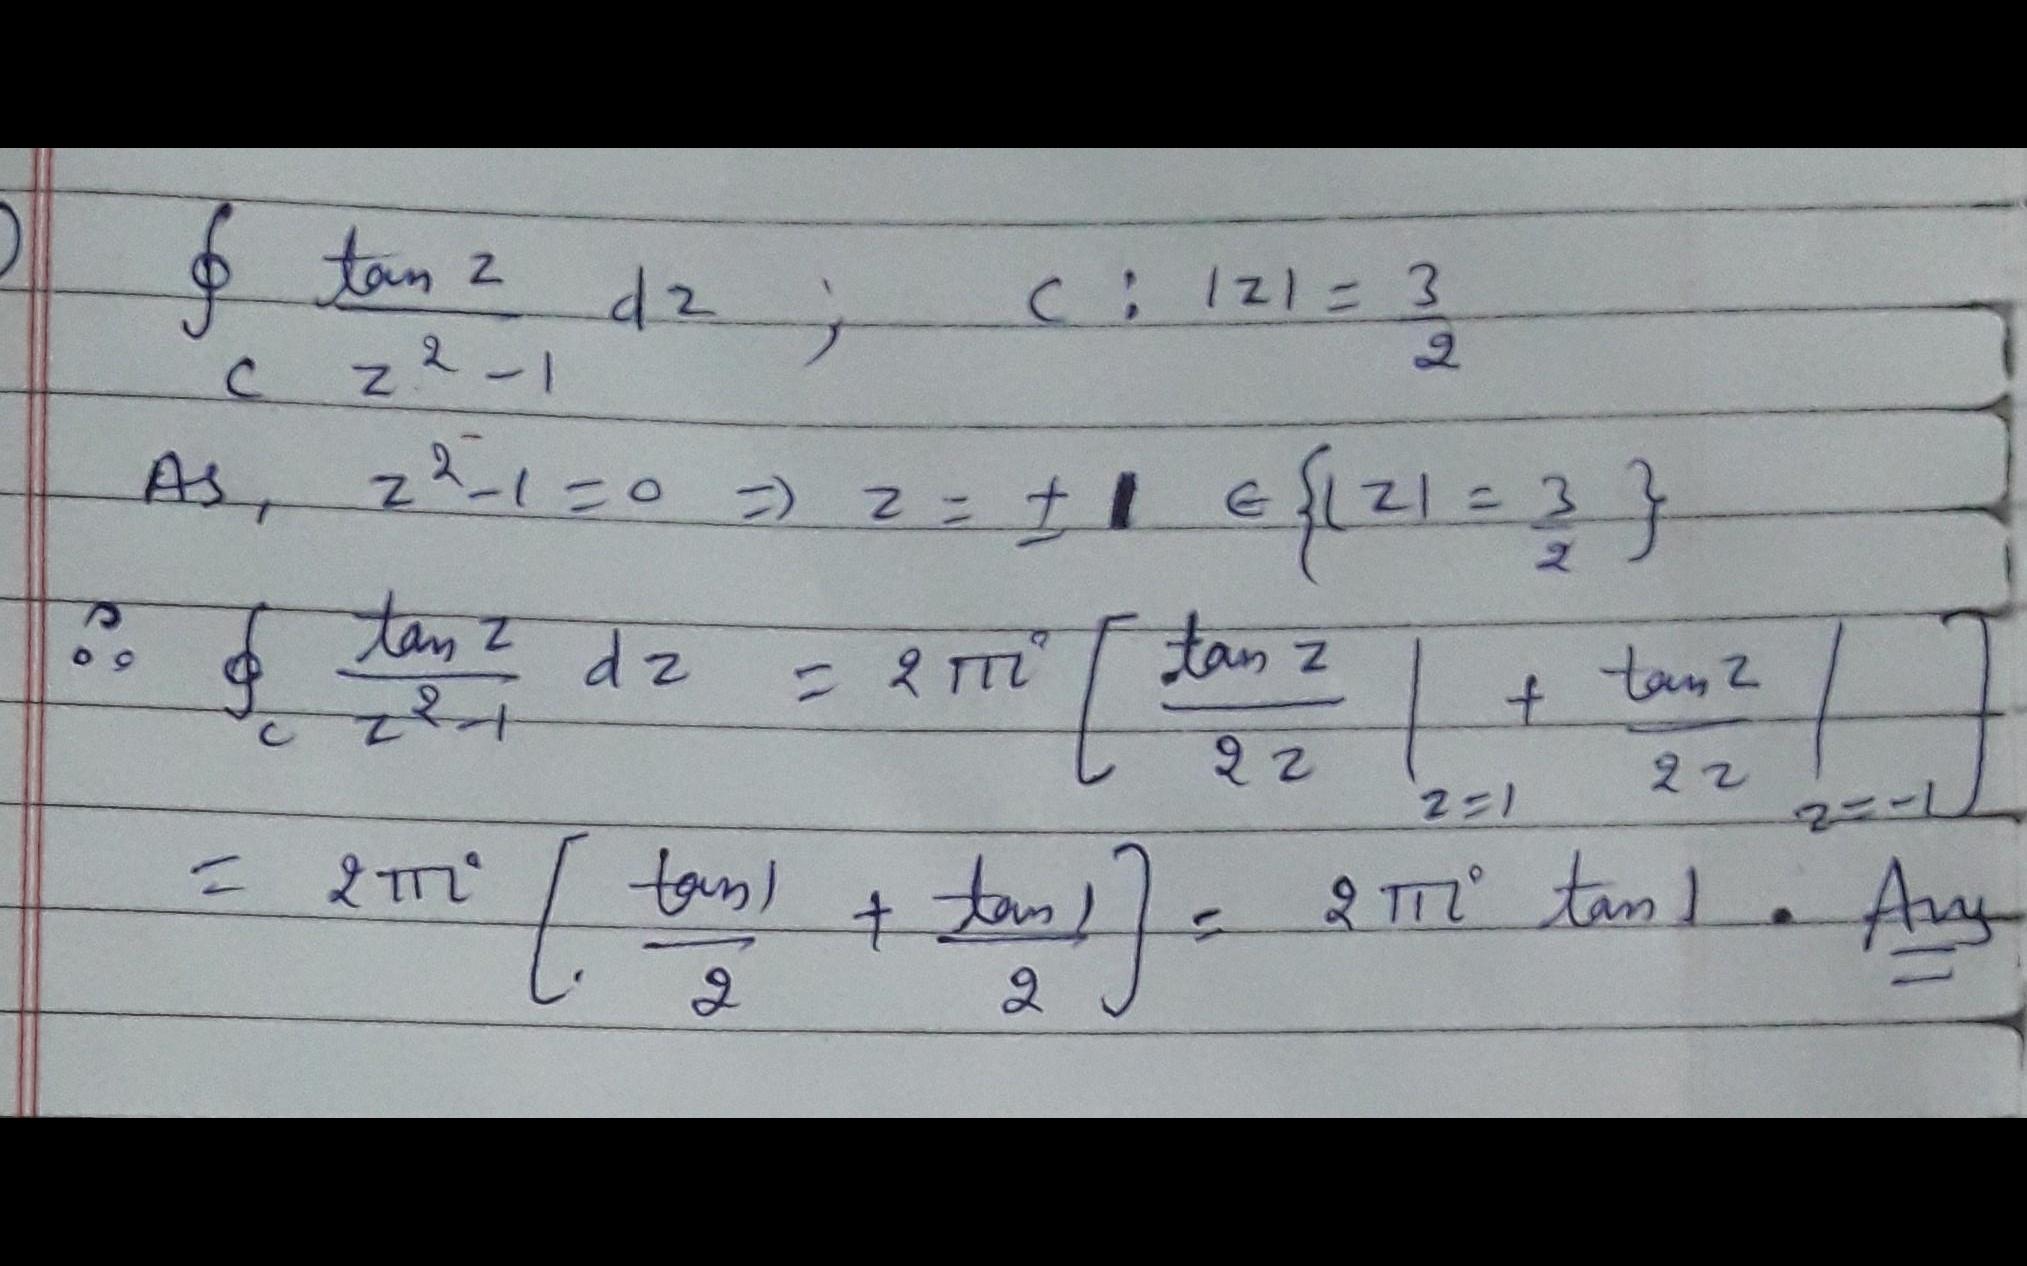 ) ∮_C tan z / (z² - 1) dz ; C : |z| = 3/2
As, z² - 1 = 0 ⇒ z = ± 1 ∈ {|z| = 3/2}
∴ ∮_C tan z / (z² - 1) dz = 2πi [ tan z / 2z |_{z=1} + tan z / 2z |_{z=-1} ]
= 2πi [ tan 1 / 2 + tan 1 / 2 ] = 2πi tan 1 . Ans